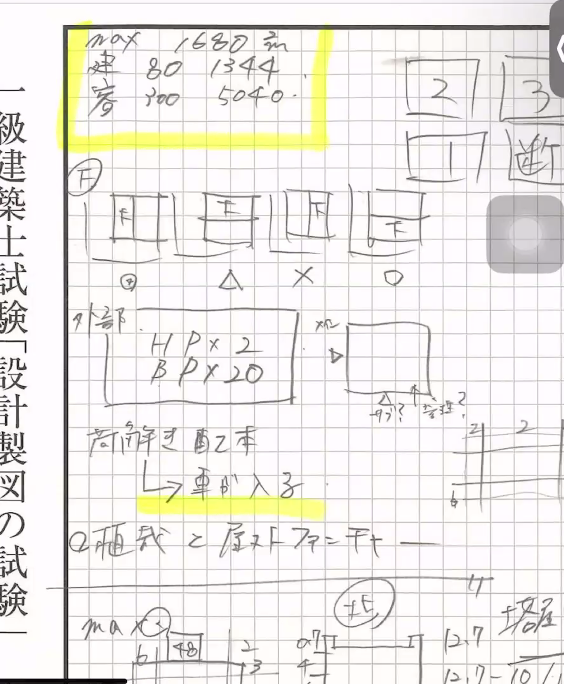 一級建築士試験「設計製図の試験」
max 1680 ㎡
建 80 1344
容 300 5040
2 3
1 断
F
F F F F
◎ △ × ○
外部
H P × 2
B P × 20
メイン
サブ? 管理?
荷解き 配本
→ 車が入る
2 2
6
植栽と屋外ファニチャー
4
max
48 2
6 3
12.7 塔屋
4 12.7-10/1